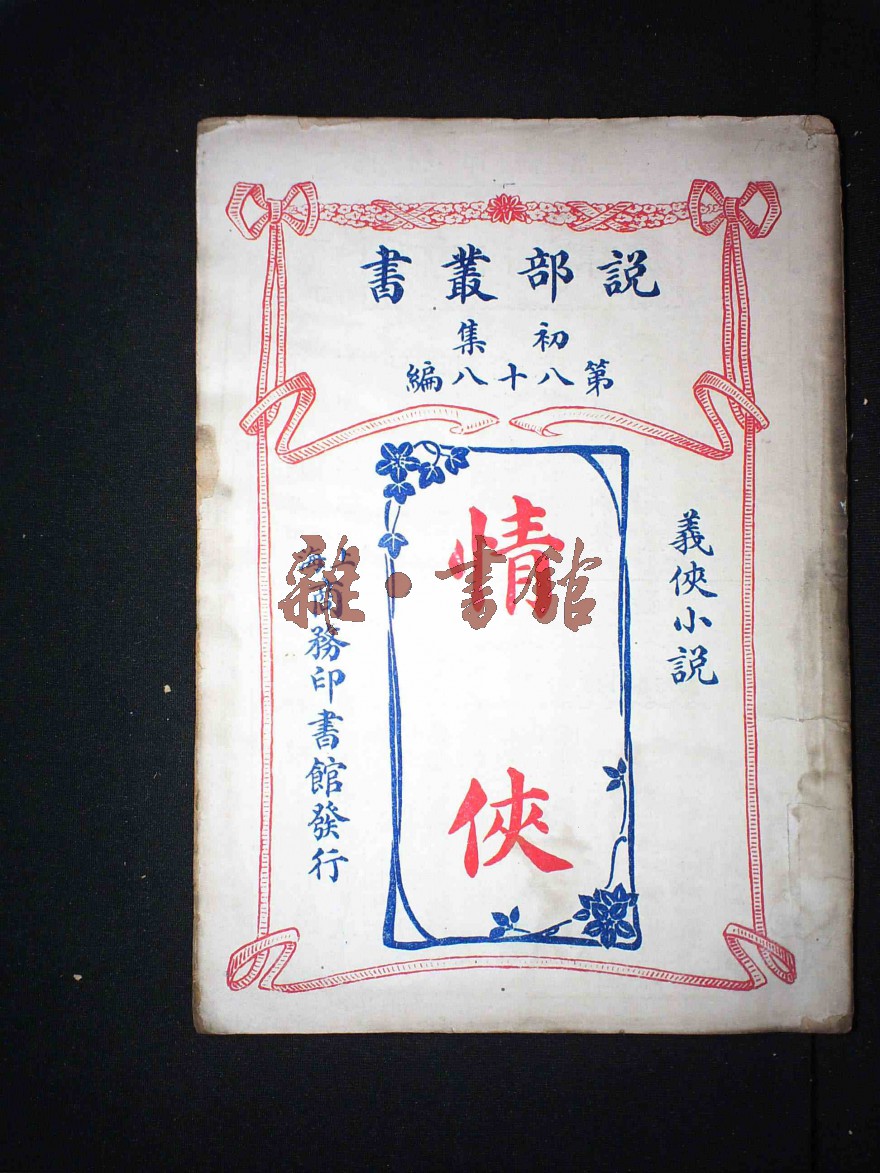 説部叢書
初集
第八十八編
義俠小説
情俠
上海商務印書館發行
雜·書館